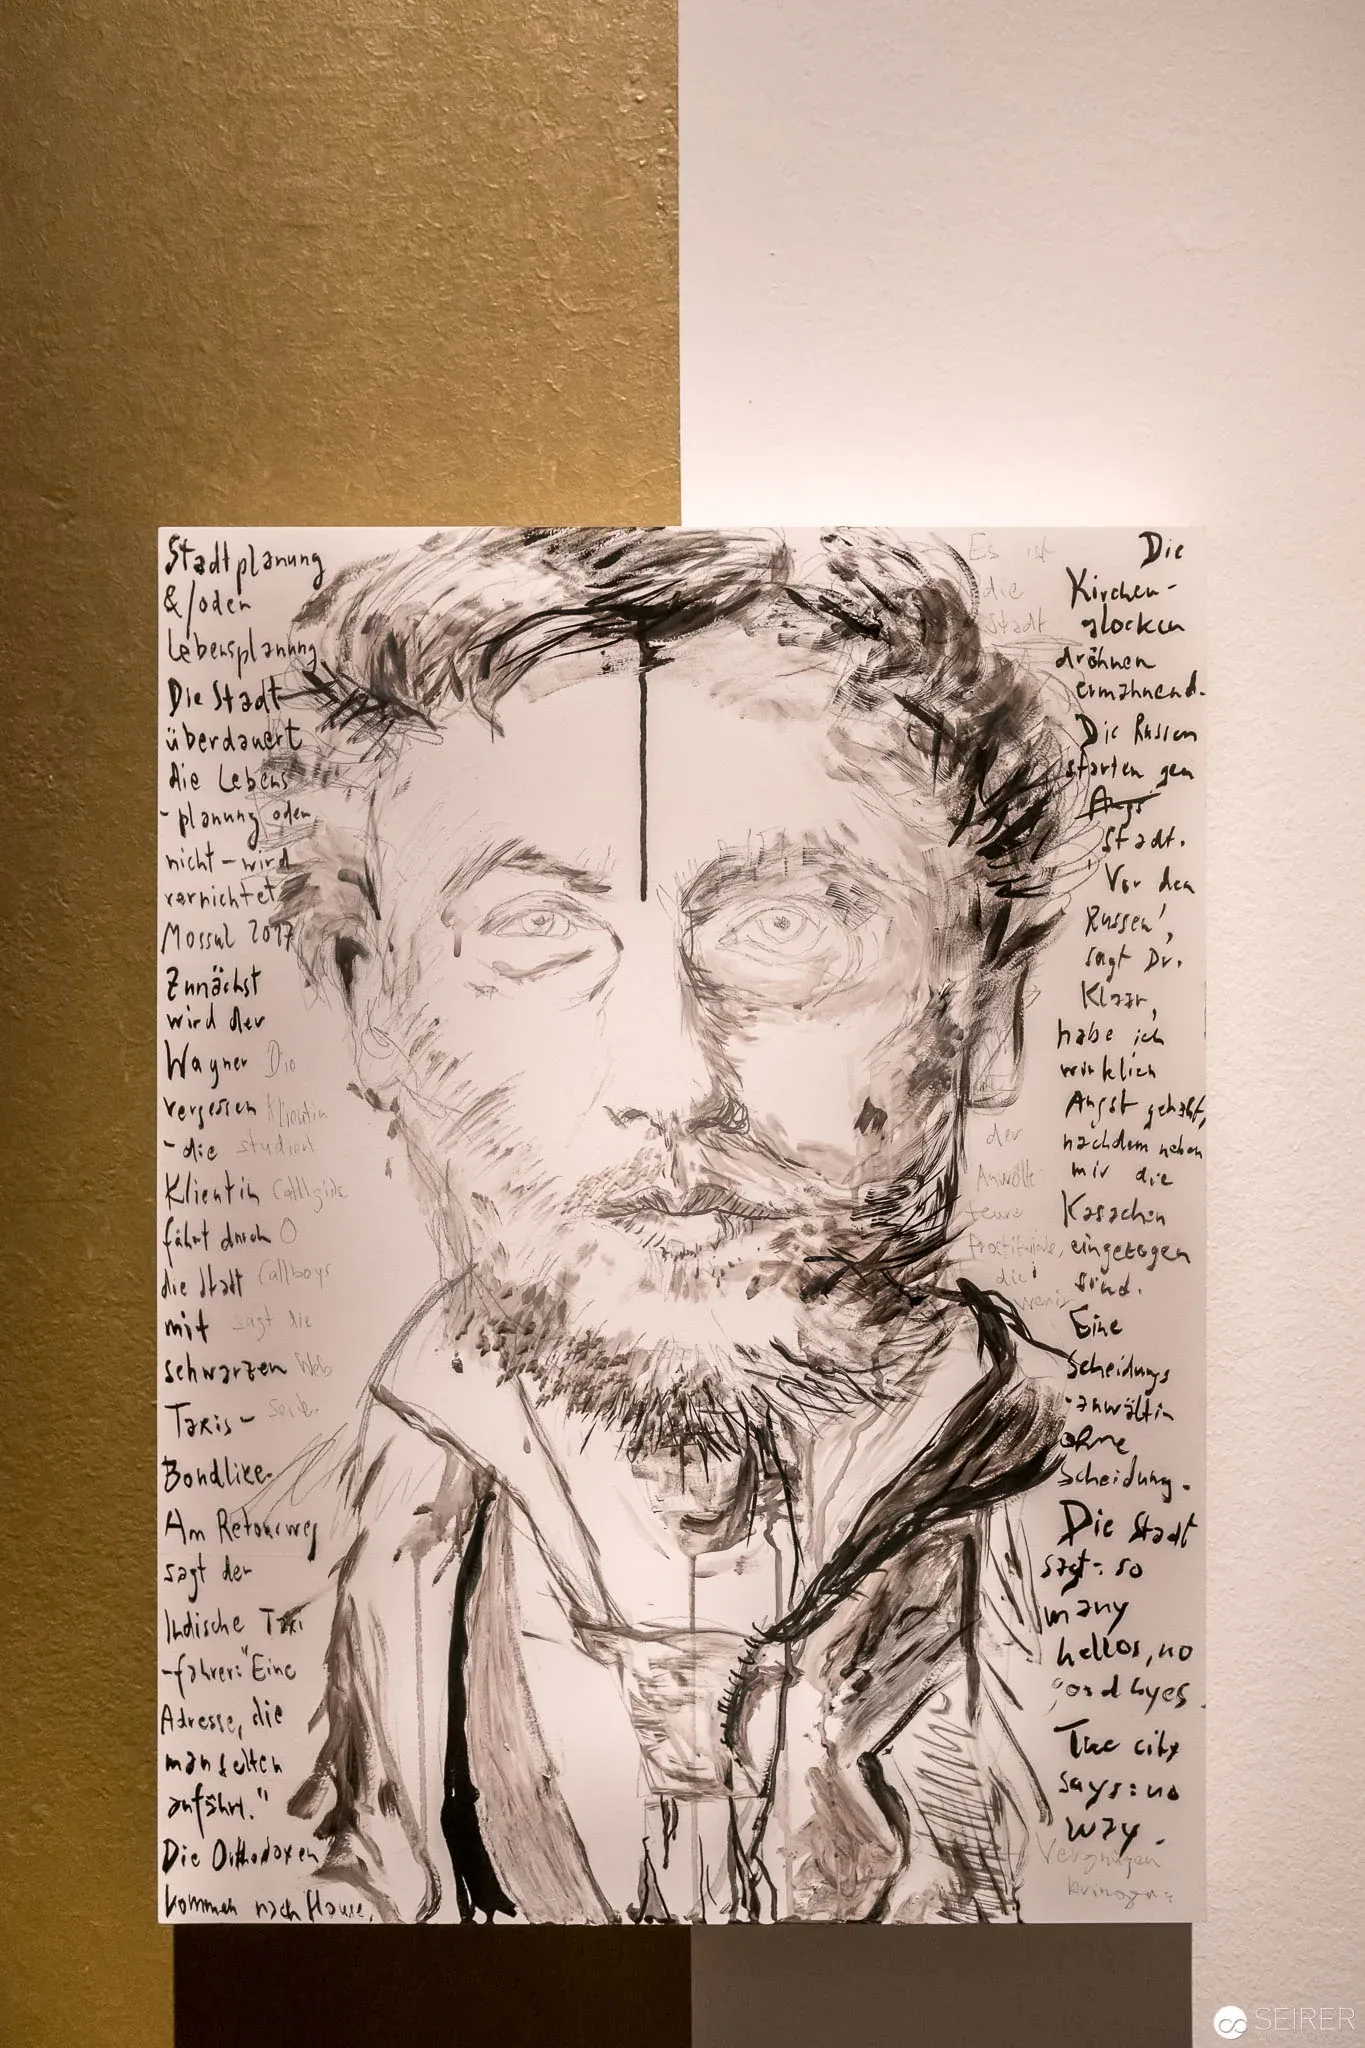 Stadtplanung
&/oder
Lebensplanung
Die Stadt
überdauert
die Lebens
-planung oder
nicht - wird
vernichtet
Mossul 2017
Zunächst
wird der
Wagner
vergessen
- die
Klientin
fährt durch
die Stadt
mit
schwarzen
Taxis -
Bondlike.
Am Retourweg
sagt der
Indische Taxi
-fahrer: "Eine
Adresse, die
man selten
anfährt."
Die Orthodoxen
kommen nach Hause.
Die
Klientin
studiert
Callgirls
O
Callboys
sagt die
Web
Seite.
Es ist
die
Stadt
der
Anwälte
teure
die
wenig
Vergnügen
Die
Kirchen-
glocken
dröhnen
ermahnend.
Die Russen
starten gen
Angs
Stadt.
'Vor den
Russen',
sagt Dr.
Klaar,
habe ich
wirklich
Angst gehabt,
nachdem neben
mir die
Kasachen
eingezogen
sind.
Eine
Scheidungs
-anwältin
ohne
Scheidung.
Die Stadt
sagt: so
many
hellos, no
goodbyes.
The city
says: no
way.
SEIRER